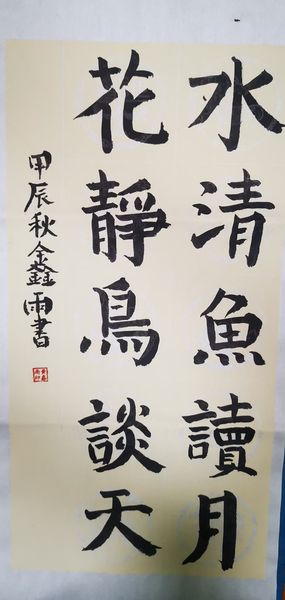 水清魚讀月
花靜鳥談天
甲辰秋金鑫雨書